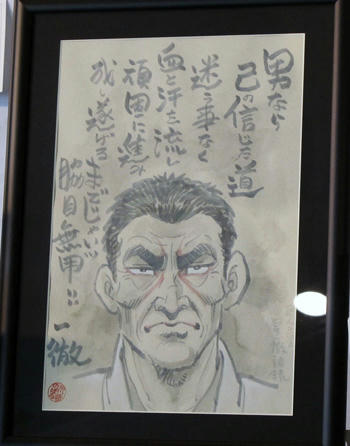 男なら
己の信じた道
迷う事なく
血と汗を流し
頑固に進み
成し遂げる
までじゃいッ
脇目無用!!
一徹